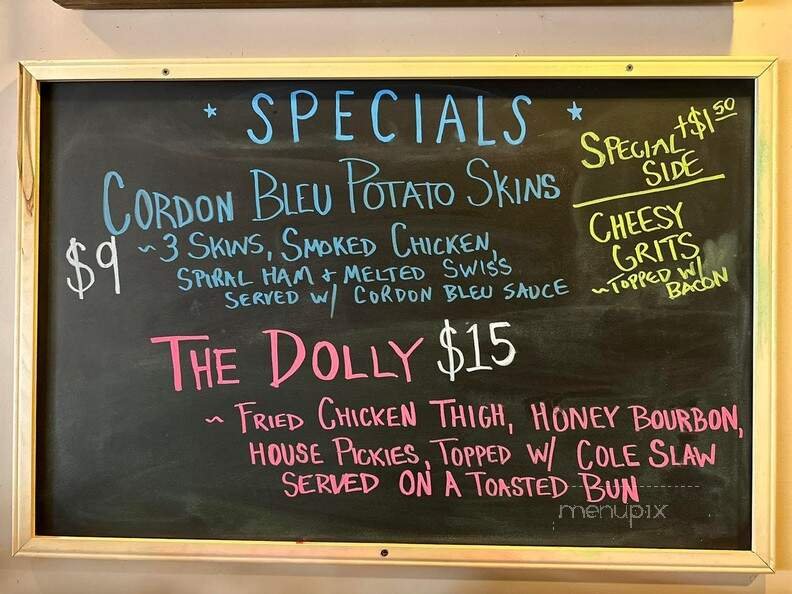 * SPECIALS *
CORDON BLEU POTATO SKINS
$9 ~3 SKINS, SMOKED CHICKEN,
SPIRAL HAM + MELTED SWISS
SERVED W/ CORDON BLEU SAUCE
SPECIAL +$1.50
SIDE
CHEESY
GRITS
~TOPPED W/
BACON
THE DOLLY $15
~ FRIED CHICKEN THIGH, HONEY BOURBON,
HOUSE PICKIES, TOPPED W/ COLE SLAW
SERVED ON A TOASTED BUN
menupix